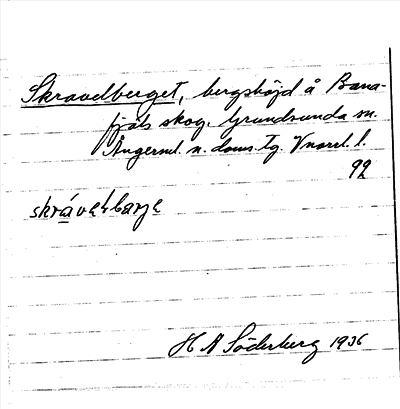 Skravelberget, bergshöjd å Bana-
fjäls skog. Grundsunda sn.
Ångerml. n. doms. tg. Vnorrl. l.
92
skrávełbarje
H A Söderberg 1936